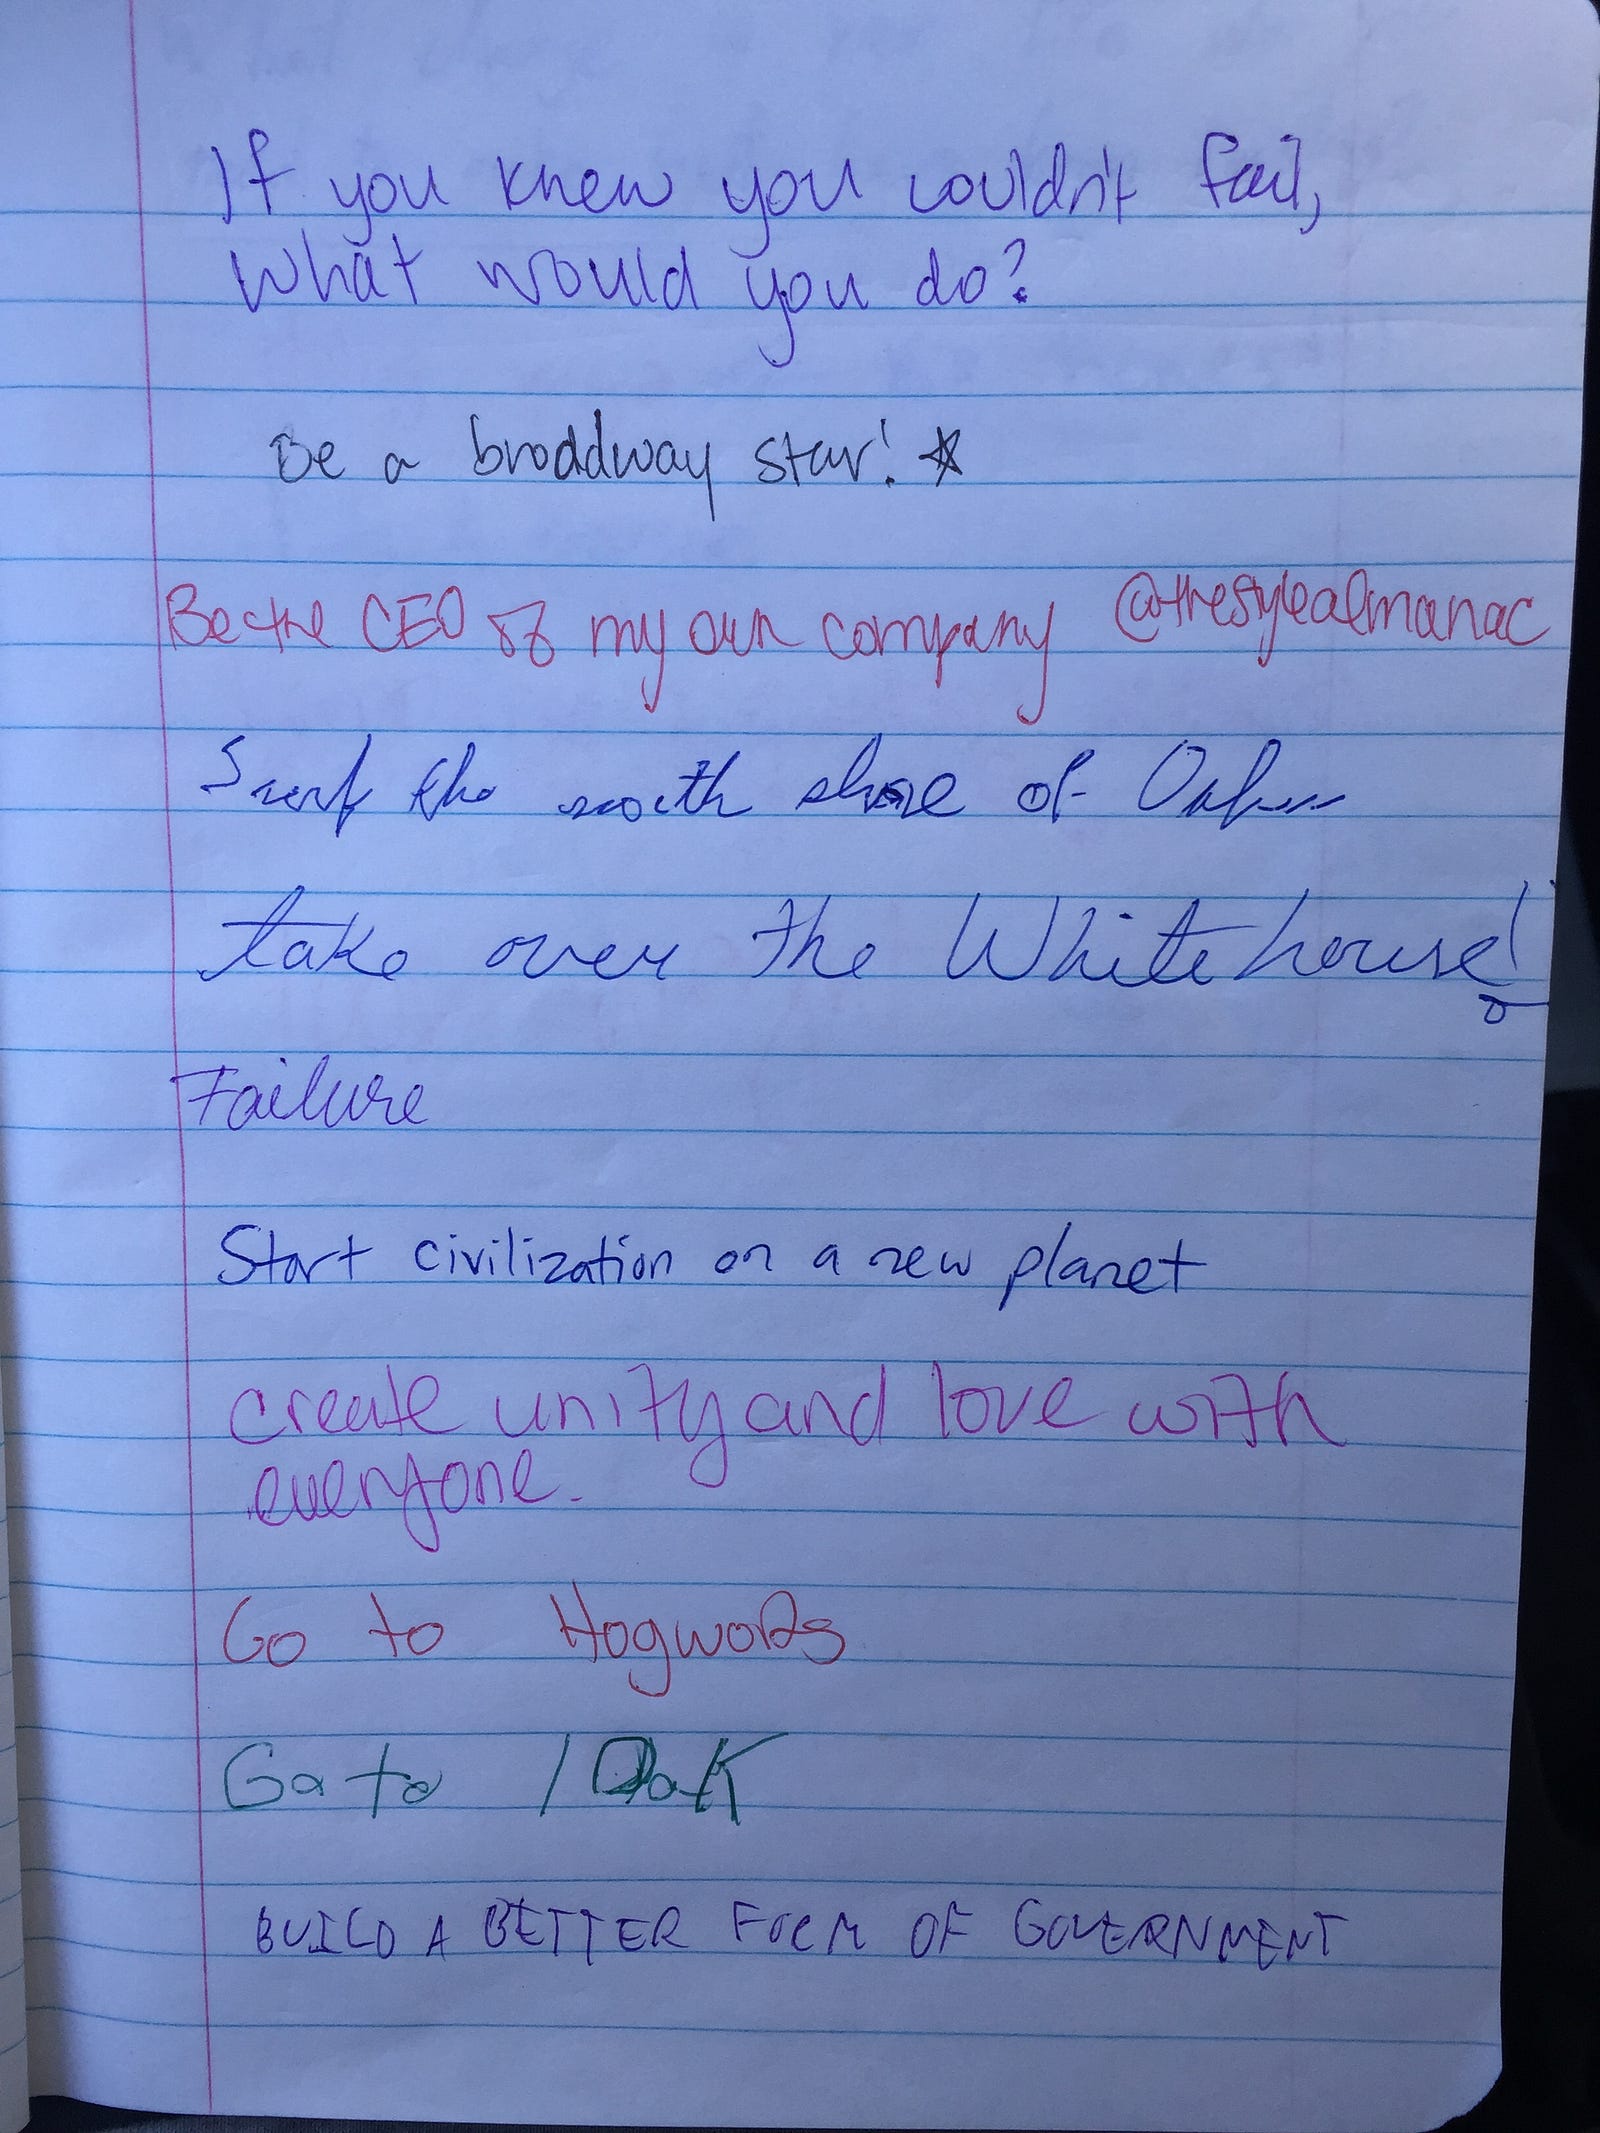 If you knew you couldn't fail,
What would you do?
Be a broadway star!
Be the CEO of my own company @thestylealmanac
Surf the north shore of Oahu
take over the Whitehouse!
Failure
Start civilization on a new planet
create unity and love with
everyone.
Go to Hogwarts
Go to
BUILD A BETTER FORM OF GOVERNMENT